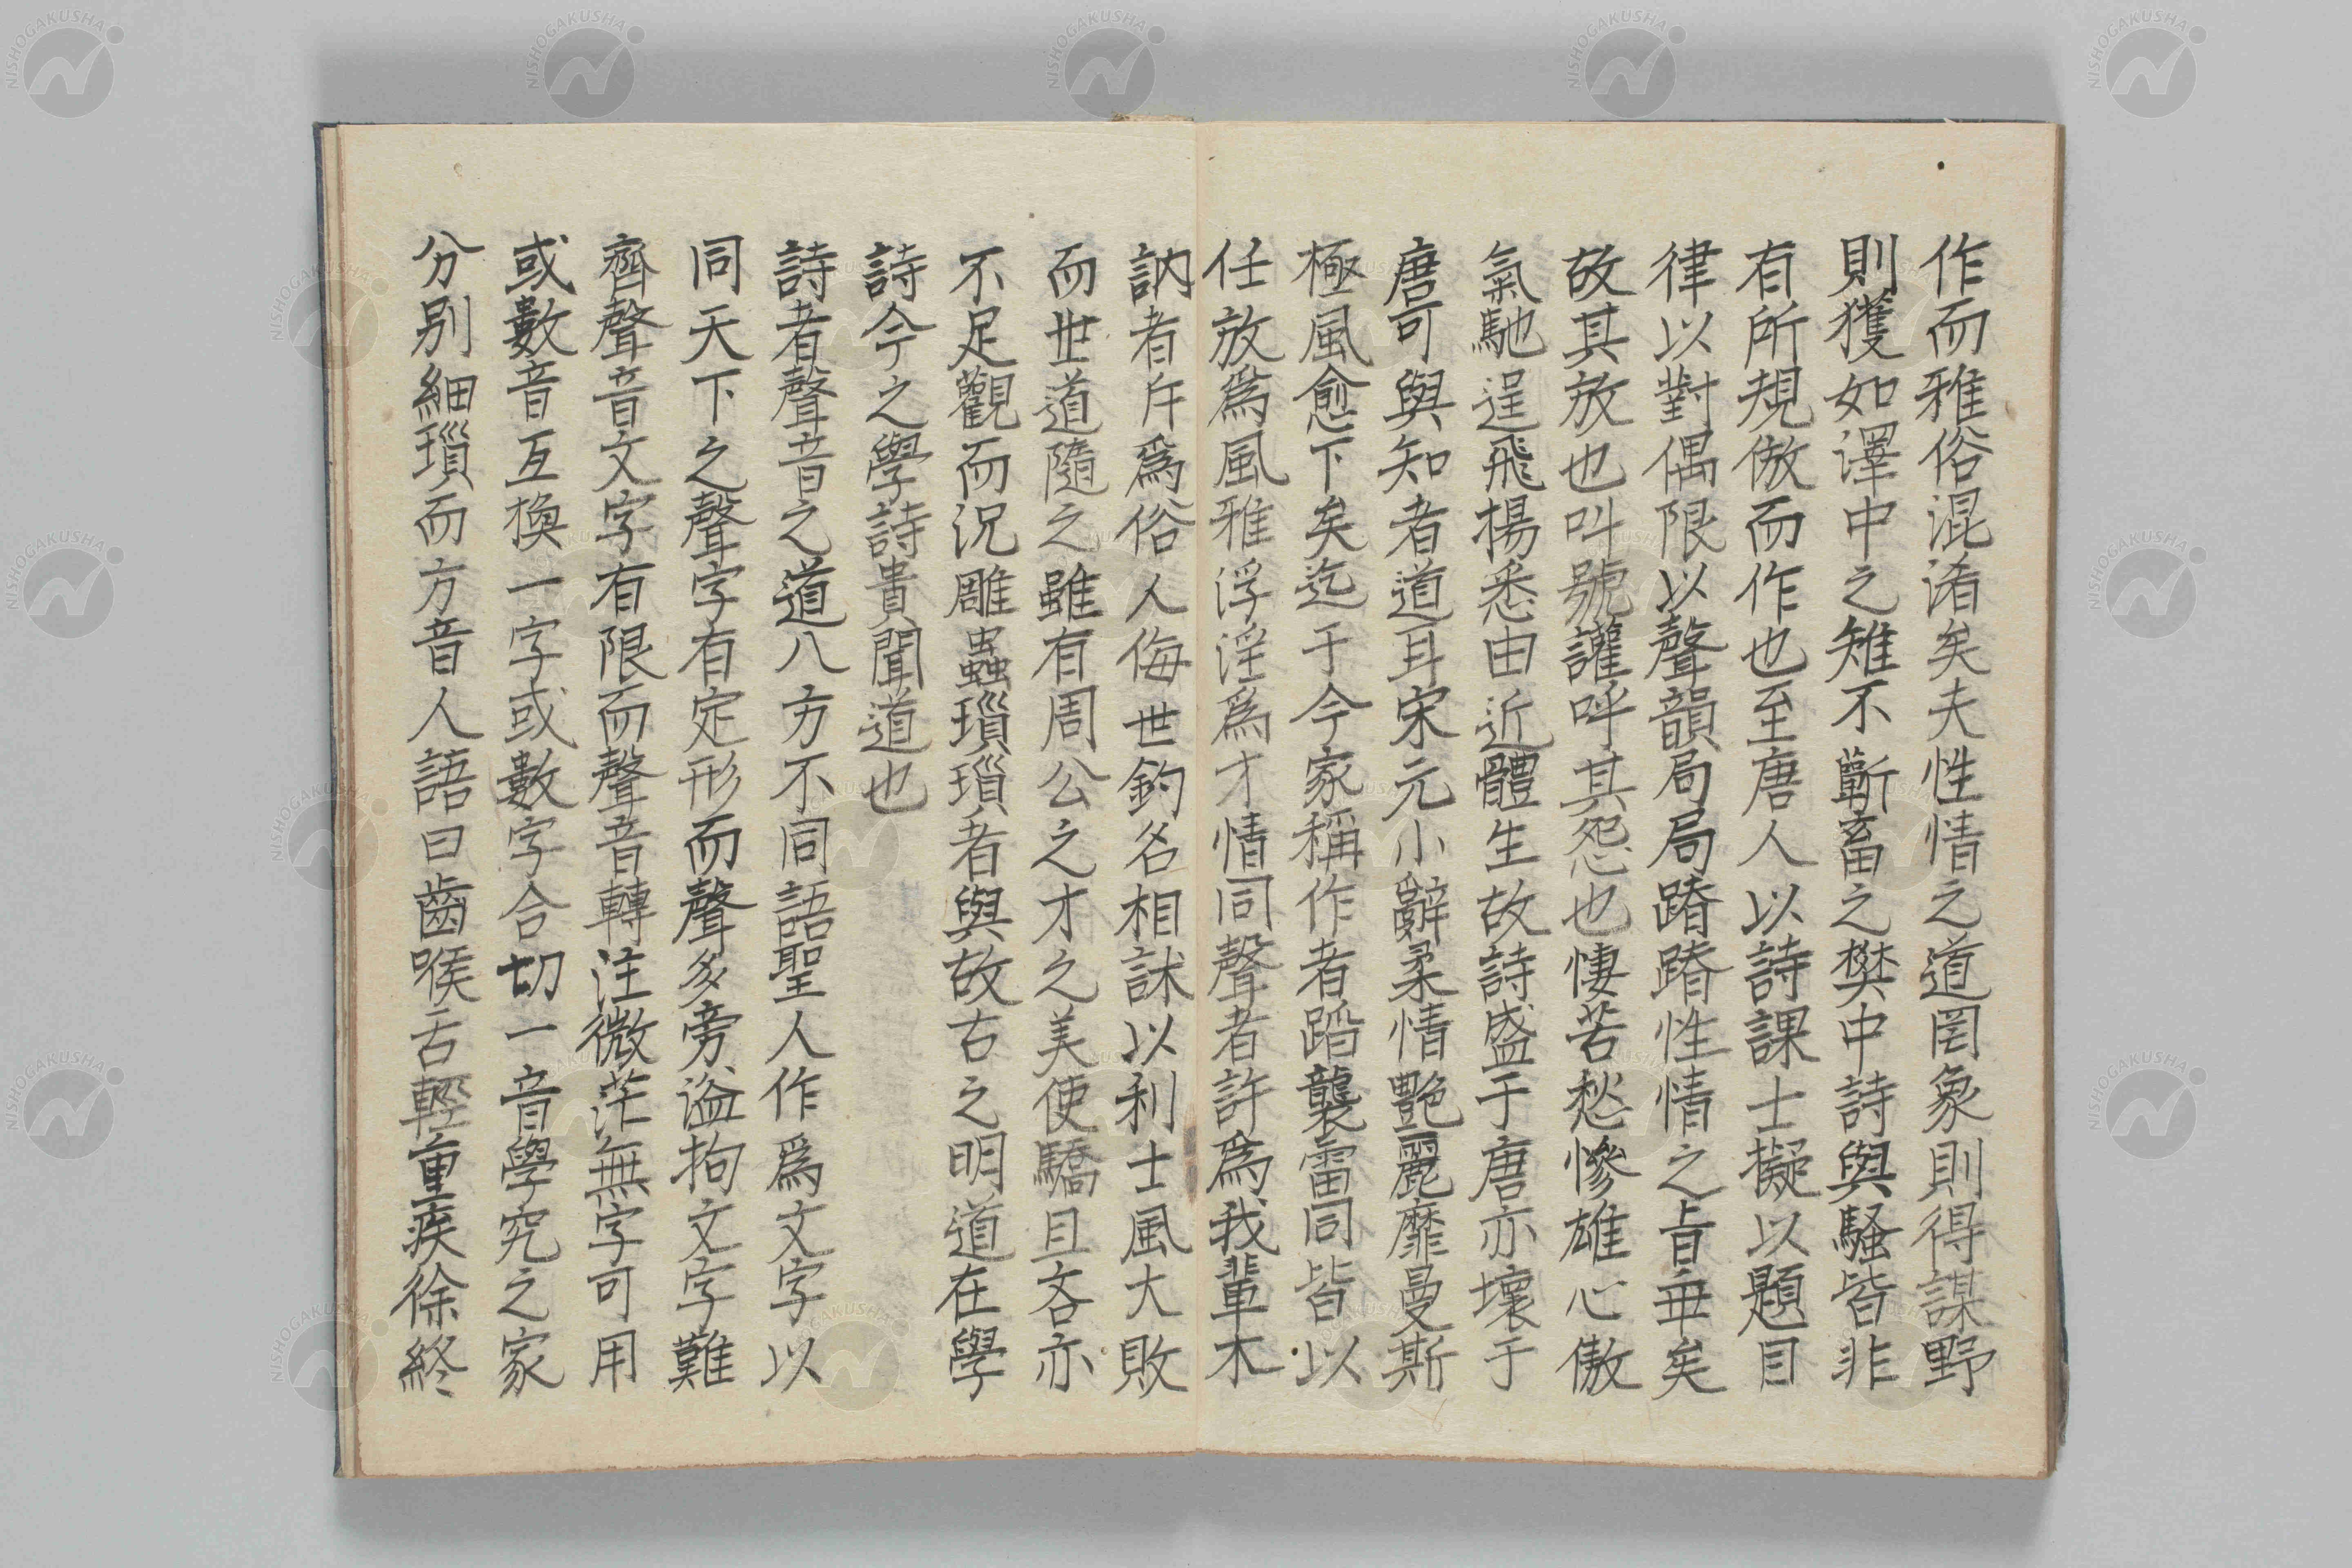 作而雅俗混淆矣夫性情之道罔象則得謀野
則獲如澤中之雉不蘄畜之樊中詩與騷皆非
有所規倣而作也至唐人以詩課士擬以題目
律以對偶限以聲韻局局蹐蹐性情之旨乖矣
故其放也叫號讙呼其怨也悽苦愁慘雄心傲
氣馳逞飛揚悉由近體生故詩盛于唐亦壞于
唐可與知者道耳宋元小辭柔情艷麗靡曼斯
極風愈下矣迄于今家稱作者蹈襲雷同皆以
任放爲風雅浮淫爲才情同聲者許爲我輩木
訥者斥爲俗人侮世釣名相訹以利士風大敗
而世道隨之雖有周公之才之美使驕且吝亦
不足觀而況雕蟲瑣瑣者與故古之明道在學
詩今之學詩貴聞道也
詩者聲音之道八方不同語聖人作爲文字以
同天下之聲字有定形而聲多旁溢拘文字難
齊聲音文字有限而聲音轉注微茫無字可用
或數音互換一字或數字合切一音學究之家
分別細瑣而方音人語曰齒喉舌輕重疾徐終
NISHOGAKUSHA